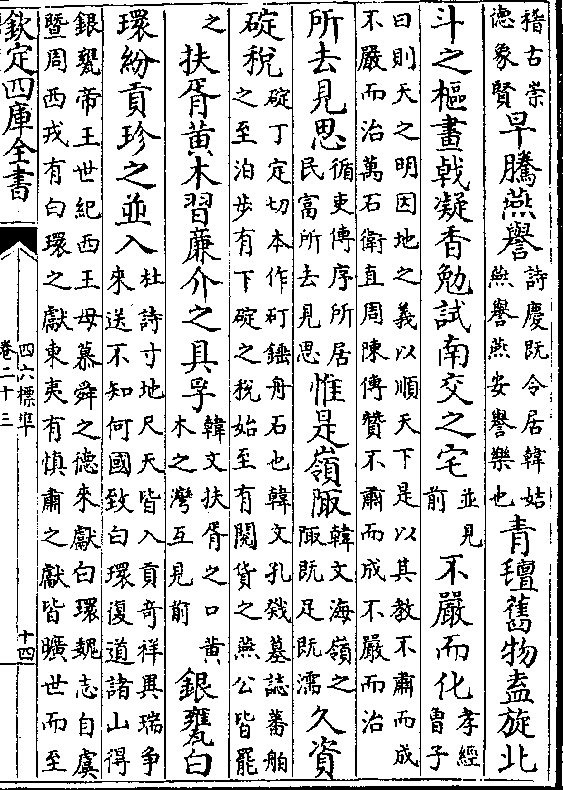 稽古崇德象賢早騰燕譽詩慶既令居韓姞燕譽燕安譽樂也青氊舊物盍旋北
斗之樞畫戟凝香勉試南交之宅並見前不嚴而化孝經曹子
曰則天之明因地之義以順天下是以其教不肅而成不嚴而治萬石衛直周陳傳贊不肅而成不嚴而治
所去見思循吏傳序所居民富所去見思惟是嶺陬韓文海嶺之陬既足既濡久資
碇稅碇丁定切本作矴錘舟石也韓文孔戣墓誌蕃舶之至泊步有下碇之稅始至有閱貨之燕公皆罷
之扶胥黃木習廉介之具孚韓文扶胥之口黃木之灣互見前銀甕白
環紛貢珍之並入杜詩寸地尺天皆入貢奇祥異瑞爭來送不知何國致白環復道諸山得
銀甕帝王世紀西王母慕舜之德來獻白環魏志自虞暨周西戎有白環之獻東夷有慎肅之獻皆曠世而至
欽定四庫全書
四六標準
卷二十三
十四